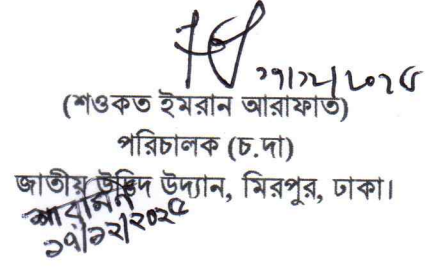 ১৭/১২/২০২৫
(শওকত ইমরান আরাফাত)
পরিচালক (চ.দা)
জাতীয় উদ্ভিদ উদ্যান, মিরপুর, ঢাকা।
শারমিন
১৭/১২/২০২৫